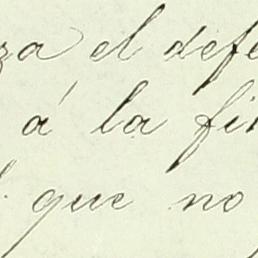 za el defe
á la fin
que no